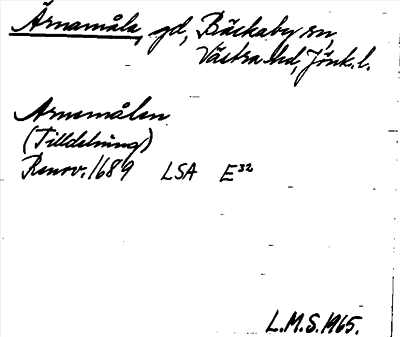 Ärnamåla, gd, Bäckaby sn,
Västra hd, Jönk. l.
Arnemålen
(Tilldelning)
Renov. 1689 LSA E³²
L.M.S. 1965.